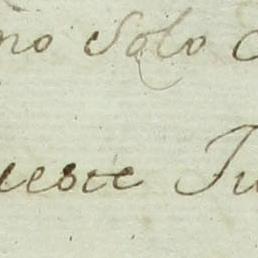 no Solo
ueste Tu